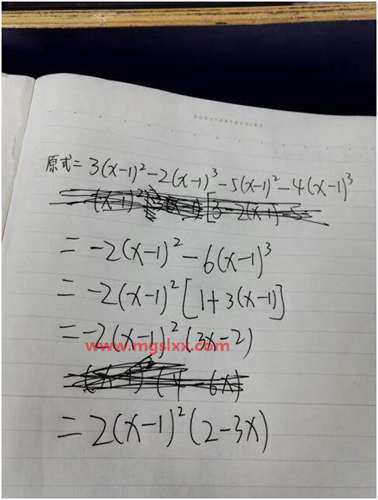 原式=3(x-1)²-2(x-1)³-5(x-1)²-4(x-1)³
=-2(x-1)²-6(x-1)³
=-2(x-1)²[1+3(x-1)]
=-2(x-1)²(3x-2)
www.mgslxx.com
=2(x-1)²(2-3x)